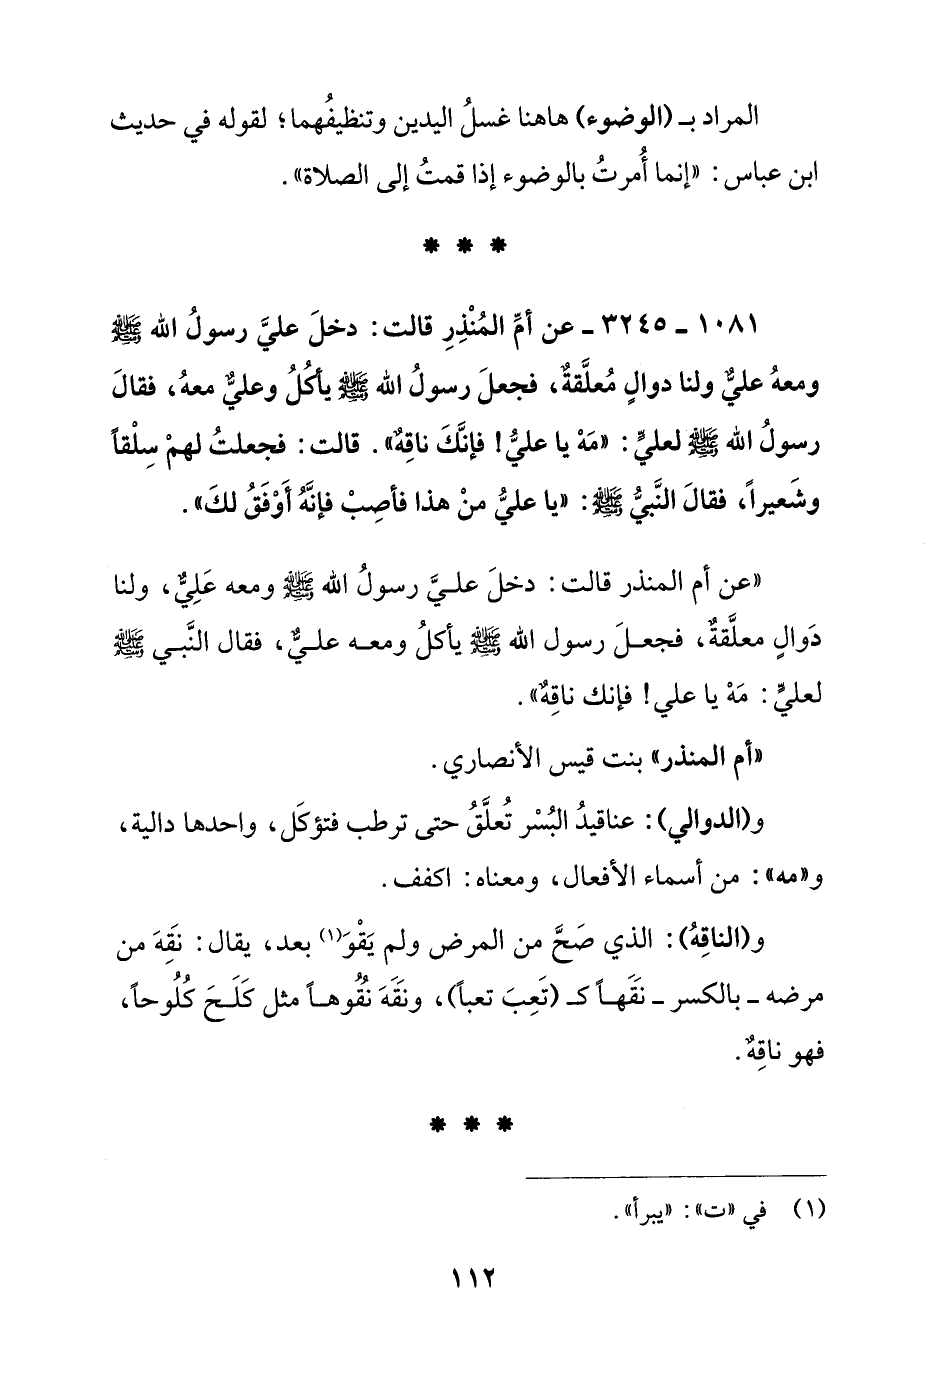 المراد بـ (الوضوء) هاهنا غسلُ اليدين وتنظيفُهما؛ لقوله في حديث
ابن عباس: «إنما أُمرتُ بالوضوء إذا قمتُ إلى الصلاة».
* * *
١٠٨١ ـ ٣٢٤٥ ـ عن أمِّ المُنْذِرِ قالت: دخلَ عليَّ رسولُ الله ﷺ
ومعهُ عليٌّ ولنا دوالٍ مُعلَّقةٌ، فجعلَ رسولُ الله ﷺ يأكُلُ وعليٌّ معهُ، فقالَ
رسولُ الله ﷺ لعليٍّ: «مَهْ يا عليُّ! فإنَّكَ ناقِهٌ». قالت: فجعلتُ لهمْ سِلْقاً
وشَعيراً، فقالَ النَّبيُّ ﷺ: «يا عليُّ منْ هذا فأصِبْ فإنَّهُ أَوْفَقُ لكَ».
«عن أم المنذر قالت: دخلَ علـيَّ رسولُ الله ﷺ ومعه عَلِيٌّ، ولنا
دَوالٍ معلَّقةٌ، فجعـلَ رسول الله ﷺ يأكلُ ومعـه علـيٌّ، فقال النَّبـي ﷺ
لعليٍّ: مَهْ يا علي! فإنك ناقِهٌ».
«أم المنذر» بنت قيس الأنصاري.
و(الدوالي): عناقيدُ البُسْر تُعلَّقُ حتى ترطب فتؤكَل، واحدها دالية،
و«مه»: من أسماء الأفعال، ومعناه: اكفف.
و(الناقِهُ): الذي صَحَّ من المرض ولم يَقْوَ(١) بعد، يقال: نَقِهَ من
مرضه ـ بالكسر ـ نَقَهـاً كـ (تَعِبَ تعباً)، ونَقَهَ نُقُوهـاً مثل كَلَـحَ كُلُوحاً،
فهو ناقِهٌ.
* * *
(١) في «ت»: «يبرأ».
١١٢